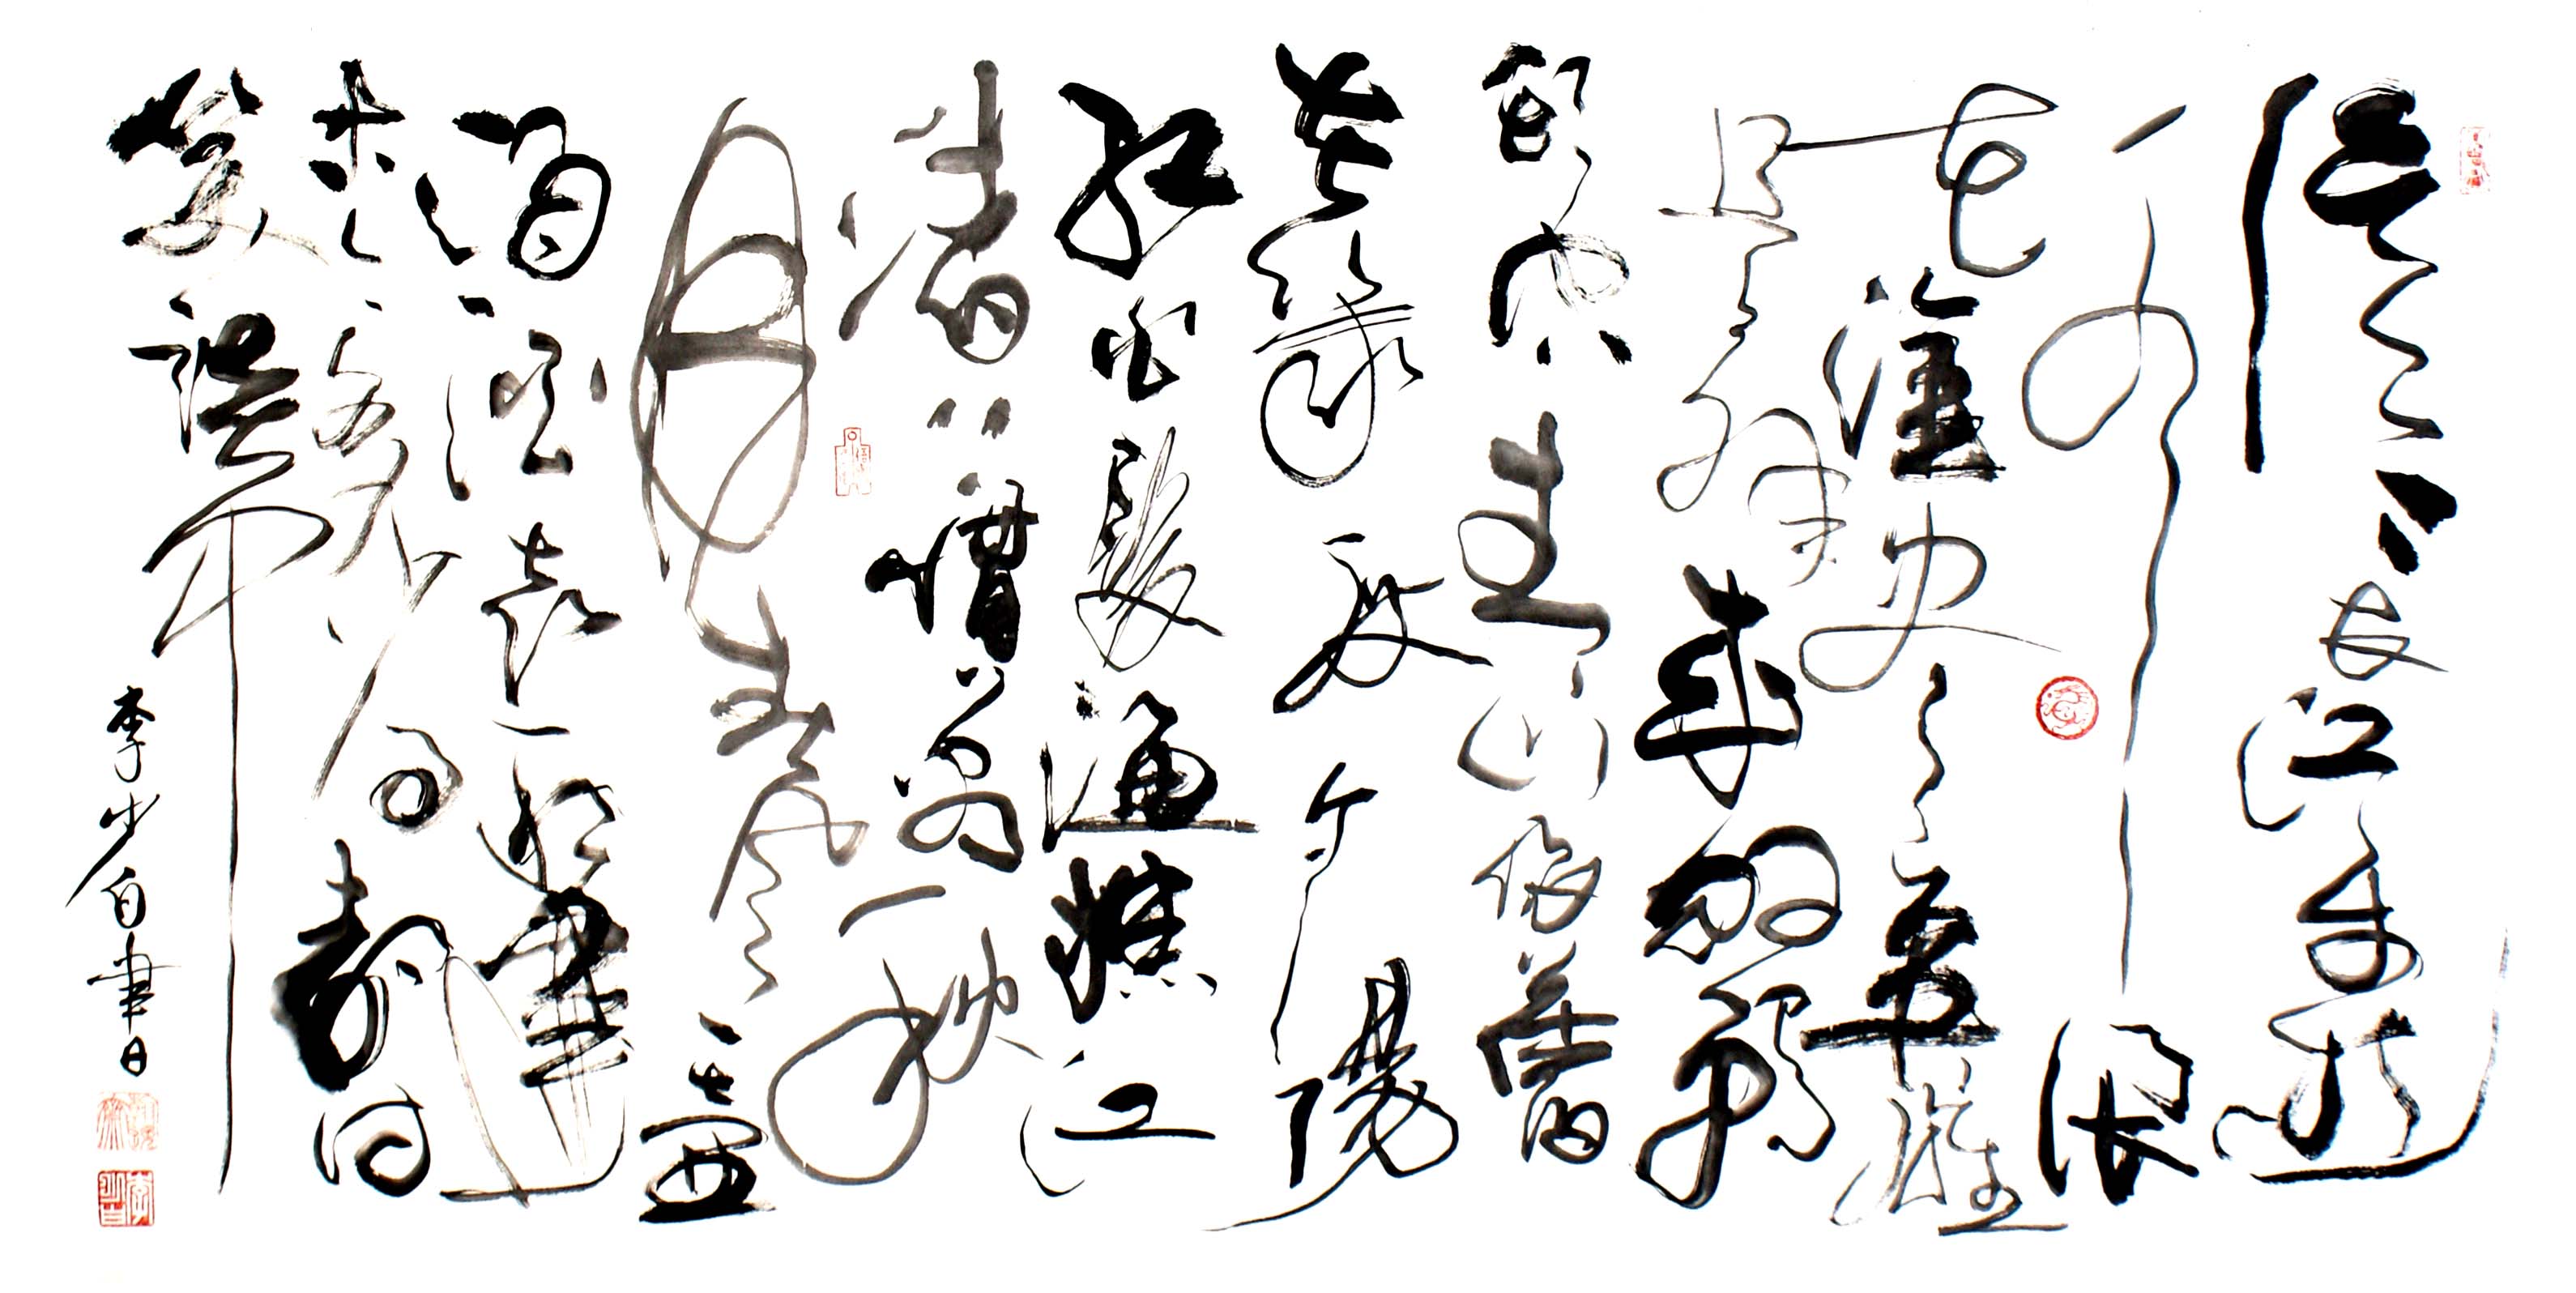 滾滾長江東逝
水浪
花淘盡英雄
是非成敗轉
頭空青山依舊
在幾度夕陽
紅白髮漁樵江
渚上慣看秋
月春風一壺
濁酒喜相逢
古今多少事都付
笑談中
李少白書